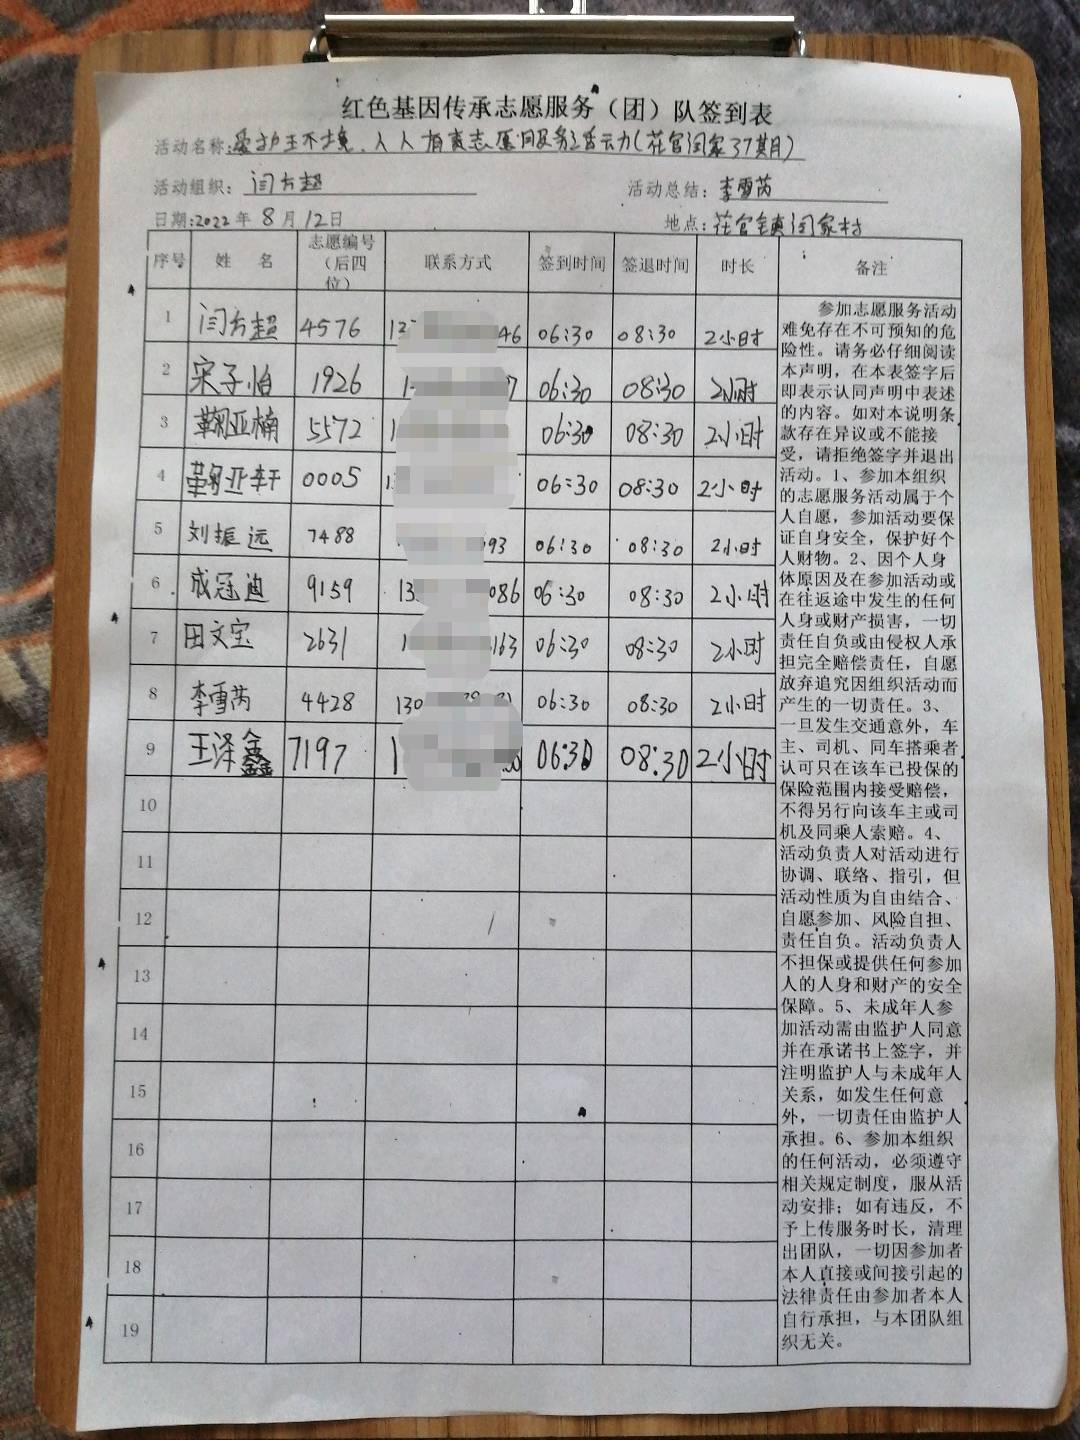 红色基因传承志愿服务（团）队签到表
活动名称:爱护环境、人人有责志愿服务活动(花官闫家37期)
活动组织: 闫方超 活动总结: 李雪芮
日期:2022年 8月 12日 地点: 花官镇闫家村
序号 姓 名 志愿编号（后四位） 联系方式 签到时间 签退时间 时长 备注
1 闫方超 4576 13 46 06:30 08:30 2小时
2 宋子怡 1926 1 7 06:30 08:30 2小时
3 鞠亚楠 5572 1 06:30 08:30 2小时
4 鞠亚轩 0005 1 06:30 08:30 2小时
5 刘振远 7488 93 06:30 08:30 2小时
6 成冠迪 9159 13 086 06:30 08:30 2小时
7 田文宝 2631 1 163 06:30 08:30 2小时
8 李雪芮 4428 130 06:30 08:30 2小时
9 王泽鑫 7197 1 06:30 08:30 2小时
10
11
12
13
14
15
16
17
18
19
参加志愿服务活动
难免存在不可预知的危
险性。请务必仔细阅读
本声明，在本表签字后
即表示认同声明中表述
的内容。如对本说明条
款存在异议或不能接
受，请拒绝签字并退出
活动。1、参加本组织
的志愿服务活动属于个
人自愿，参加活动要保
证自身安全，保护好个
人财物。2、因个人身
体原因及在参加活动或
在往返途中发生的任何
人身或财产损害，一切
责任自负或由侵权人承
担完全赔偿责任，自愿
放弃追究因组织活动而
产生的一切责任。3、
一旦发生交通意外，车
主、司机、同车搭乘者
认可只在该车已投保的
保险范围内接受赔偿，
不得另行向该车主或司
机及同乘人索赔。4、
活动负责人对活动进行
协调、联络、指引，但
活动性质为自由结合、
自愿参加、风险自担、
责任自负。活动负责人
不担保或提供任何参加
人的人身和财产的安全
保障。5、未成年人参
加活动需由监护人同意
并在承诺书上签字，并
注明监护人与未成年人
关系，如发生任何意
外，一切责任由监护人
承担。6、参加本组织
的任何活动，必须遵守
相关规定制度，服从活
动安排；如有违反，不
予上传服务时长，清理
出团队，一切因参加者
本人直接或间接引起的
法律责任由参加者本人
自行承担，与本团队组
织无关。